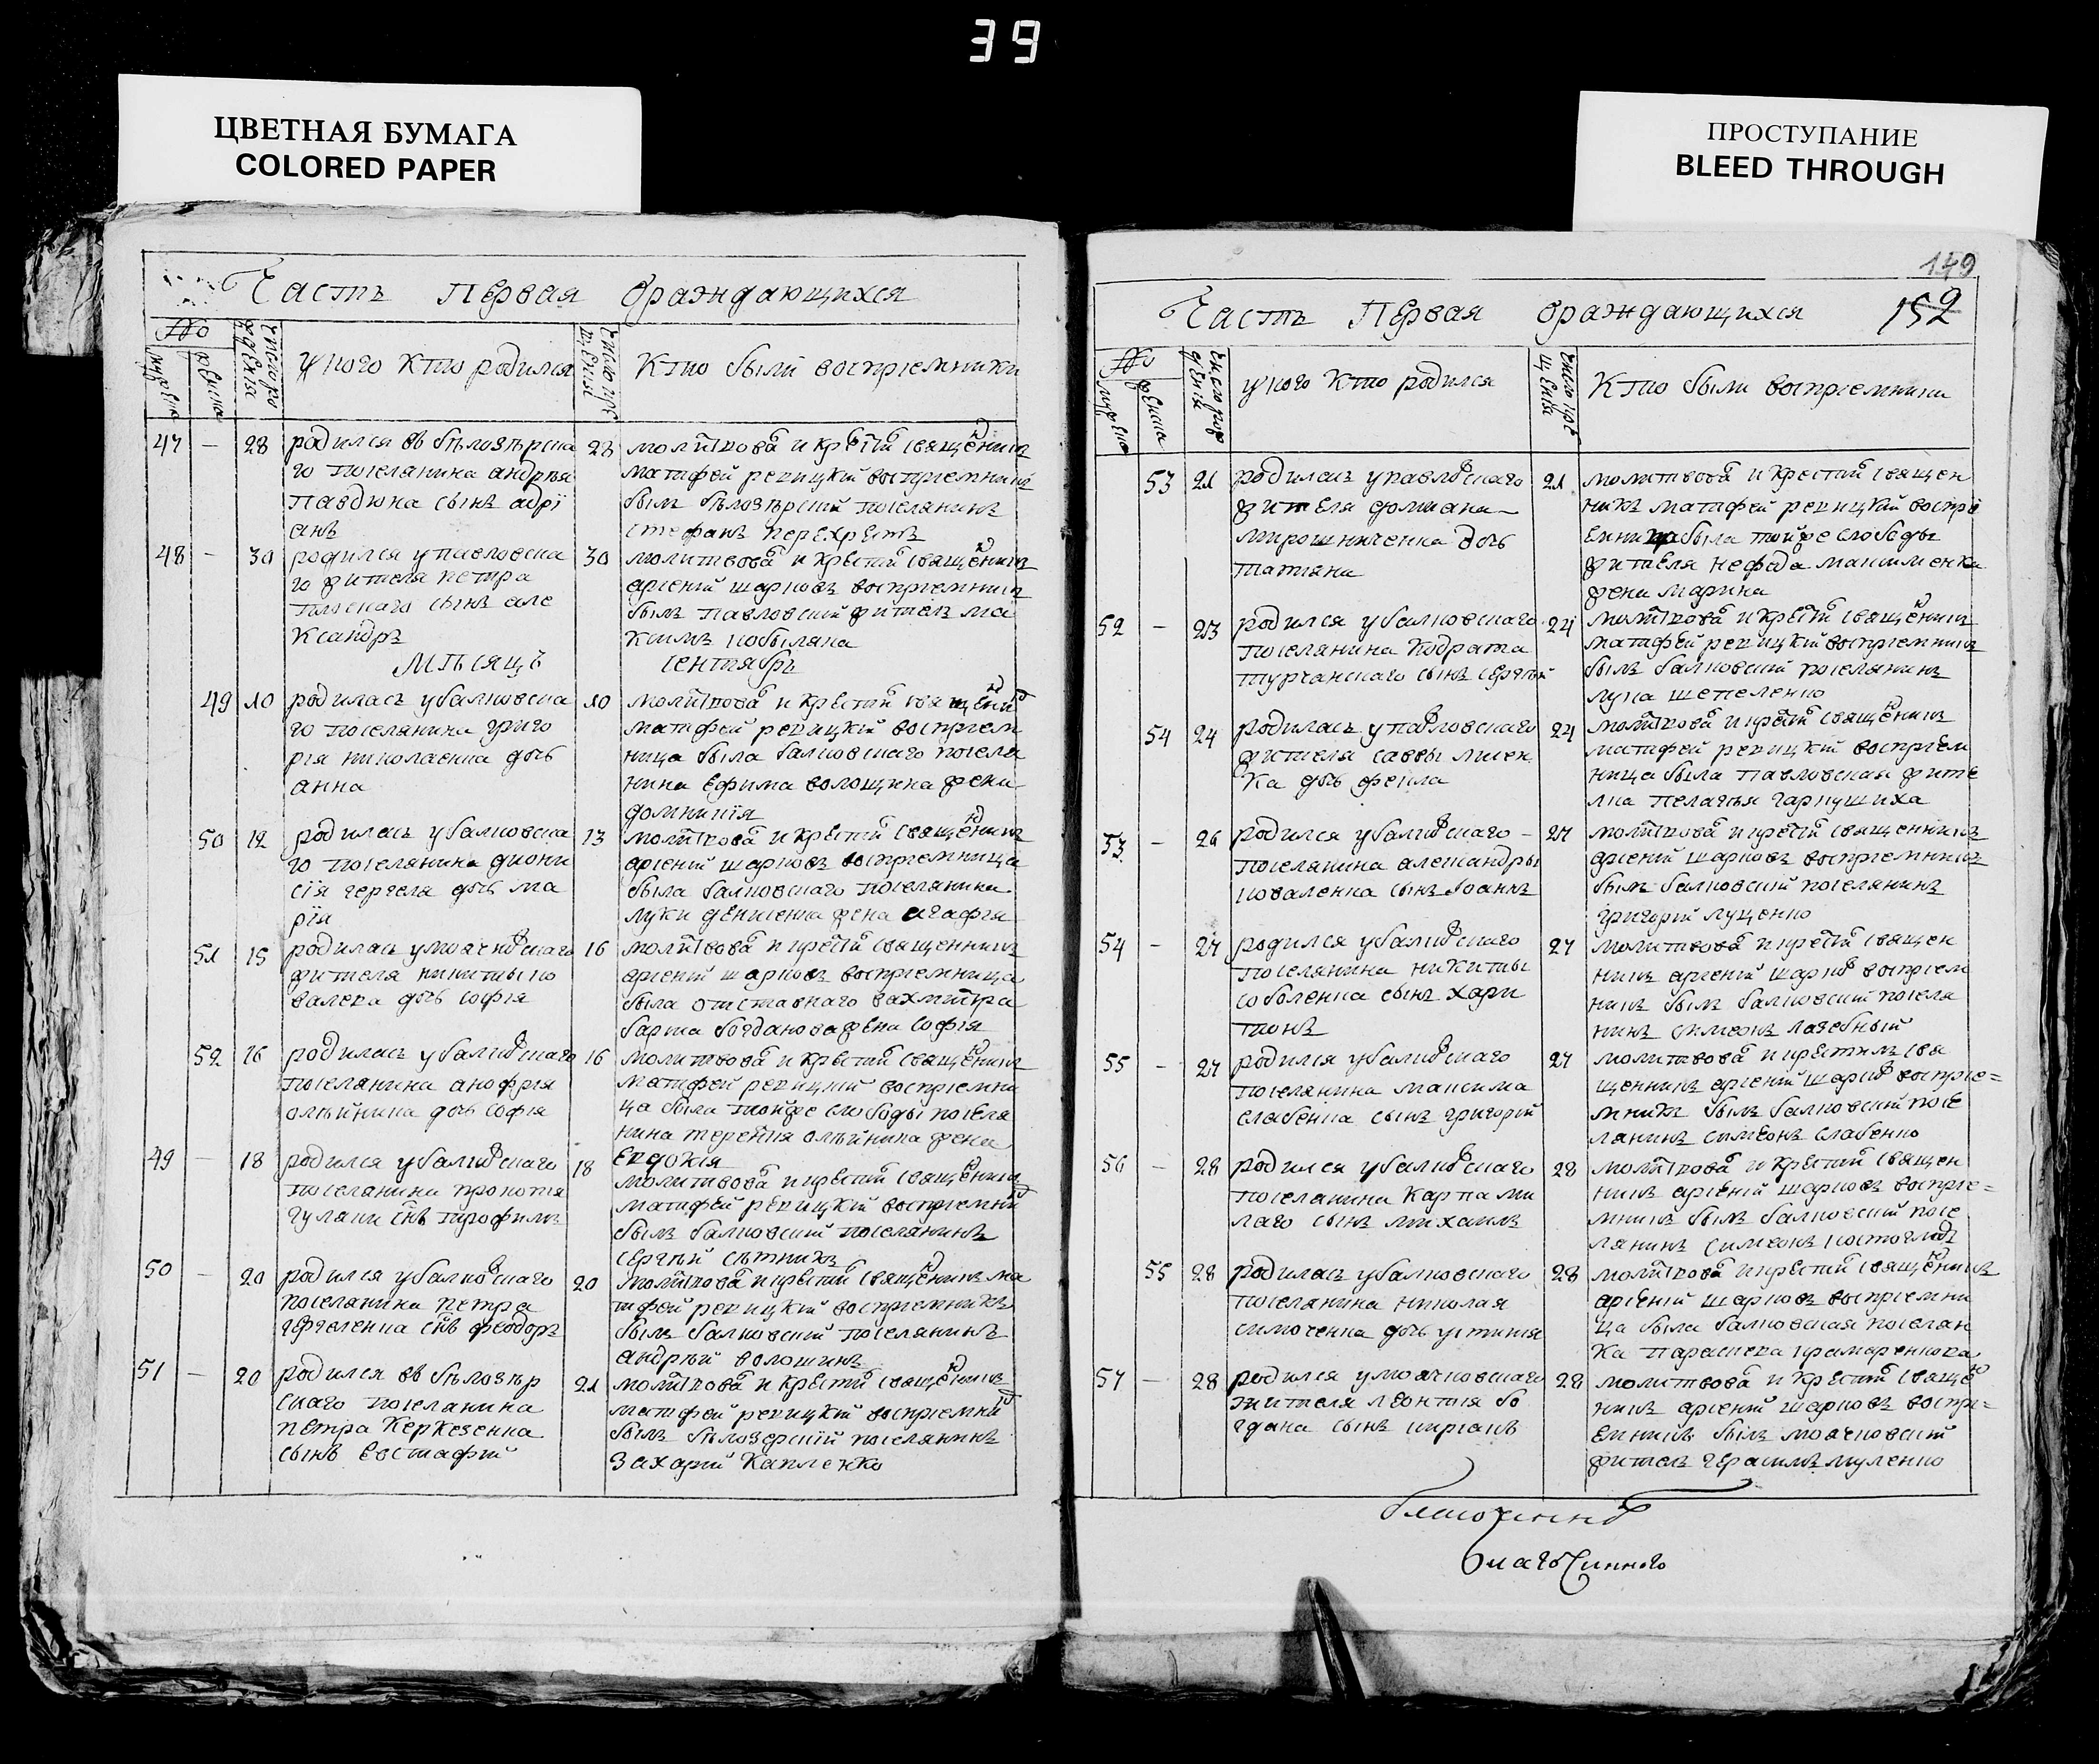 39
ЦВЕТНАЯ БУМАГА
COLORED PAPER
ПРОСТУПАНИЕ
BLEED THROUGH
Часть Первая ораждающихся
№
у кого кто родился
Кто были воспріемники
47 – 28 родился въ бѣлозѣрска
го поселянина андрѣя
павдюна сынъ адрі
анъ
28 молитвова и крести священник
матфей рекицкій воспріемник
былъ бѣлозѣрскій поселянинъ
стефанъ перехрестъ
48 – 30 родился у павловска
го жителя петра
сынъ але
ксандръ
30 молитвова и крести священник
арсений шарковъ воспріемник
былъ павловский житель ма
ксимъ кобыляка
Мѣсяцъ сентябрь
49 10 родилась у балковска
го поселянина григо
рія николаенка дочь
анна
10 молитвова и крестил священи
матфей рекицкій воспріем
ница была балковскаго поселя
нина ефима волощука жена
домникія
50 12 родилась у балковска
го поселянина диони
сія гергела дочь ма
рія
13 молитвова и крести священик
арсений шарковъ воспріемница
была балковскаго поселянина
луки денисенка жена агафія
51 15 родилась у моячковскаго
жителя никиты ко
валека дочь софія
16 молитвова и крести священник
арсений шарковъ воспріемница
была отставнаго вахмистра
богданова жена софія
52 16 родилась у балковскаго
поселянина анофрія
олѣйника дочь софія
16 молитвова и крестил священик
матфей рекицкий воспріемни
ца была тойже слободы поселя
нина терентія олѣйника жена
евдокія
49 – 18 родился у балковскаго
поселянина прокопія
гулака снъ трофимъ
18 молитвова и крестил священик
матфей рекицкій воспріемни
былъ балковский поселянинъ
сергѣй сытникъ
50 – 20 родился у балковскаго
поселянина петра
гергеленка снъ феодоръ
20 молитвова и крестил священикъ ма
тфей рекицкій воспріемникъ
былъ балковский поселянинъ
андрѣй волошинъ
51 – 20 родился въ бѣлозѣр
скаго поселянина
петра Керкезенка
сынъ евстафий
21 молитвова и крестил священик
матфей рекицкій воспріемни
былъ бѣлозерскій поселянинъ
Захарий Капленко
149
152
Часть Первая ораждающихся
№
у кого кто родился
Кто были воспріемники
53 21 родилась у павловскаго
жителя
мирошниченка дочь
татіяна
21 молитвова и крестил священ
никъ матфей рекицкій воспрі
емница была тойже слободы
жителя нефода максименка
жена марина
52 – 23 родился у балковскаго
поселянина Кодрата
турчанскаго сынъ сергѣй
24 молитвова и крестил священик
матфей рекицкій воспріемник
былъ балковский поселянинъ
лука шепеленко
54 24 родилась у павловскаго
жителя саввы лисен
ка дочь фекла
24 молитвова и крестил священик
матфей рекицкій воспріем
ница была павловская жите
лка пелагѣя гаркушиха
53 – 26 родился у балковскаго
поселянина александры
коваленка сынъ іоаннъ
27 молитвова и крести священник
арсений шарковъ воспріемник
былъ балковский поселянинъ
григорий луценко
54 – 27 родился у балковскаго
поселянина никиты
соболенка сынъ хари
тонъ
27 молитвова и крести священ
никъ арсений шарков воспріем
никъ былъ балковский поселя
нинъ симеонъ лазебный
55 – 27 родился у балковскаго
поселянина максима
слабенка сынъ григорий
27 молитвова и крестилъ свя
щенникъ арсений шарков воспріе=
мникъ былъ балковский посе
лянинъ симеонъ слабенко
56 – 28 родился у балковскаго
поселянина карпа ми
лаго сынъ михаилъ
28 молитвова и крестил священ
никъ арсений шарковъ воспріе=
мникъ былъ балковский посе
лянинъ симеонъ костоглод
55 28 родилась у балковскаго
поселянина николая
симоченка дочь устинія
28 молитвова и крестил священикъ
арсений шарковъ воспріемни
ца была балковская поселян
ка параскева крамаренкова
57 – 28 родился у моячковскаго
жителя леонтія бо
гдана сынъ киріанъ
28 молитвова и крестил свяще
никъ арсений шарковъ воспрі=
емникъ былъ моячковский
житель герасимъ муленко